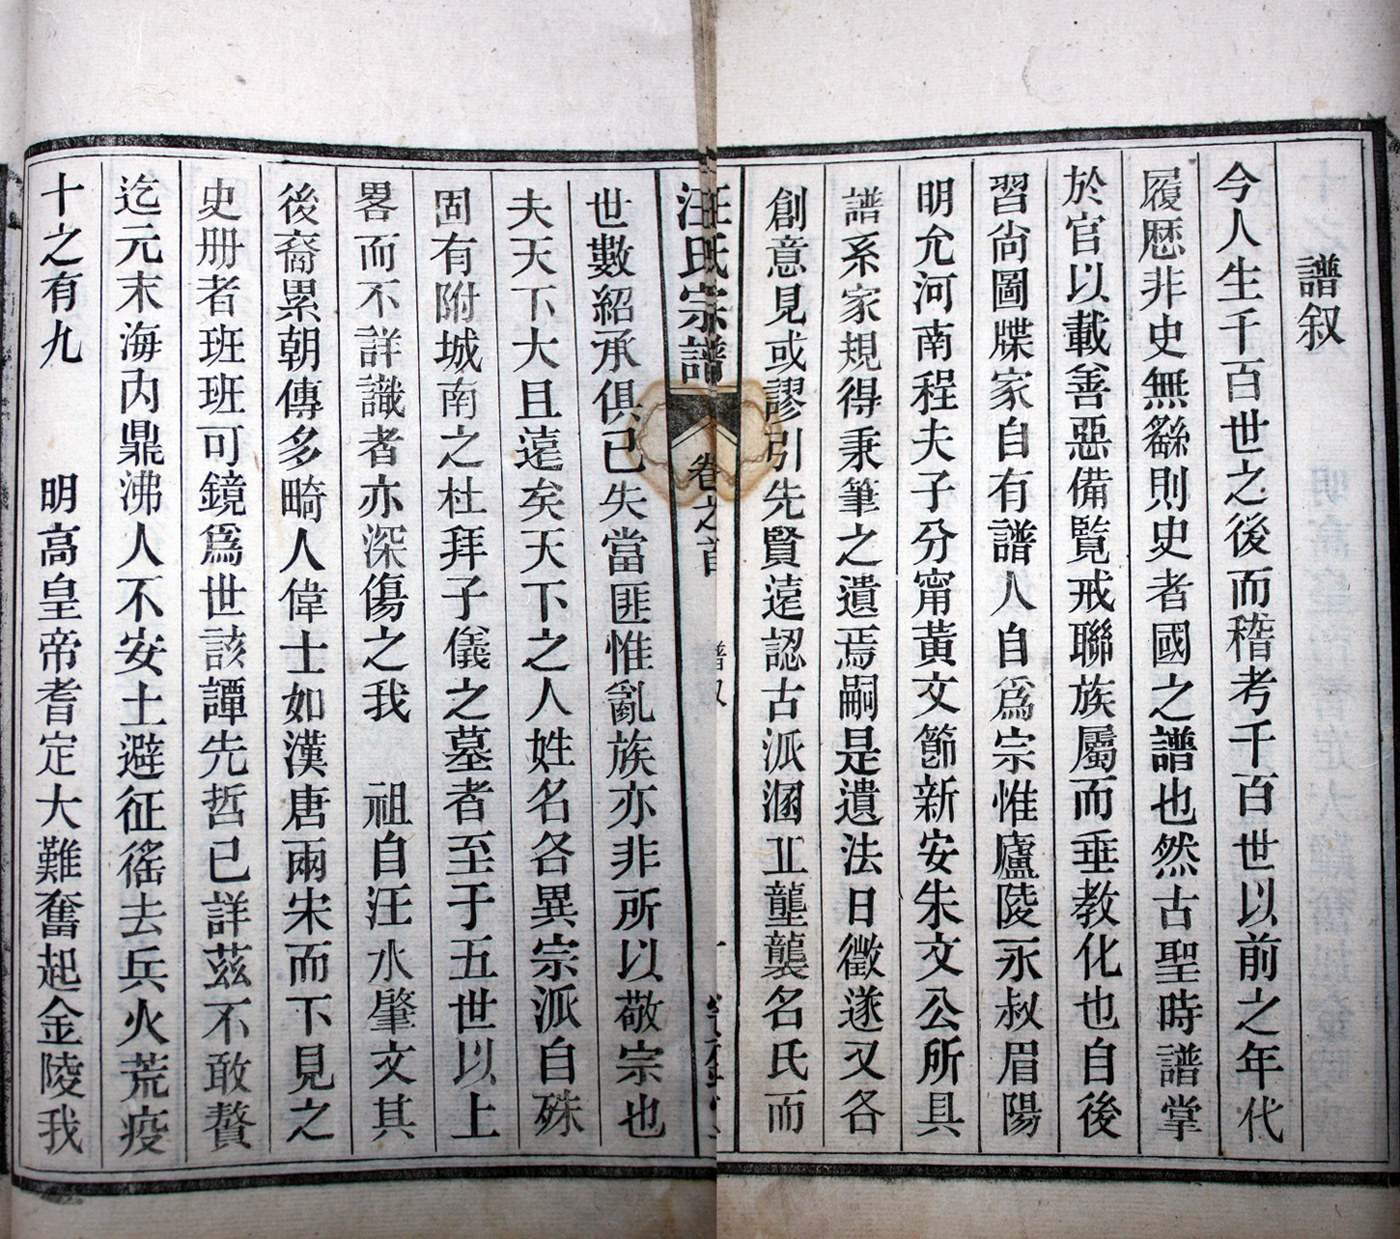 譜叙
今人生千百世之後而稽考千百世以前之年代
履歷非史無繇則史者國之譜也然古聖時譜掌
於官以載善惡備覽戒聯族屬而垂教化也自後
習尙圖牒家自有譜人自爲宗惟廬陵永叔眉陽
明允河南程夫子分甯黃文節新安朱文公所具
譜系家規得秉筆之遺焉嗣是遺法日徵遂又各
創意見或謬引先賢遠認古派溷丘壟襲名氏而
汪氏宗譜
卷之首
譜叙
一
世數紹承俱已失當匪惟亂族亦非所以敬宗也
夫天下大且遠矣天下之人姓名各異宗派自殊
固有附城南之杜拜子儀之墓者至于五世以上
畧而不詳識者亦深傷之我 祖自汪水肇文其
後裔累朝傳多畸人偉士如漢唐兩宋而下見之
史册者班班可鏡爲世該譚先哲已詳茲不敢贅
迄元末海內鼎沸人不安土避征徭去兵火荒疫
十之有九 明高皇帝耆定大難奮起金陵我